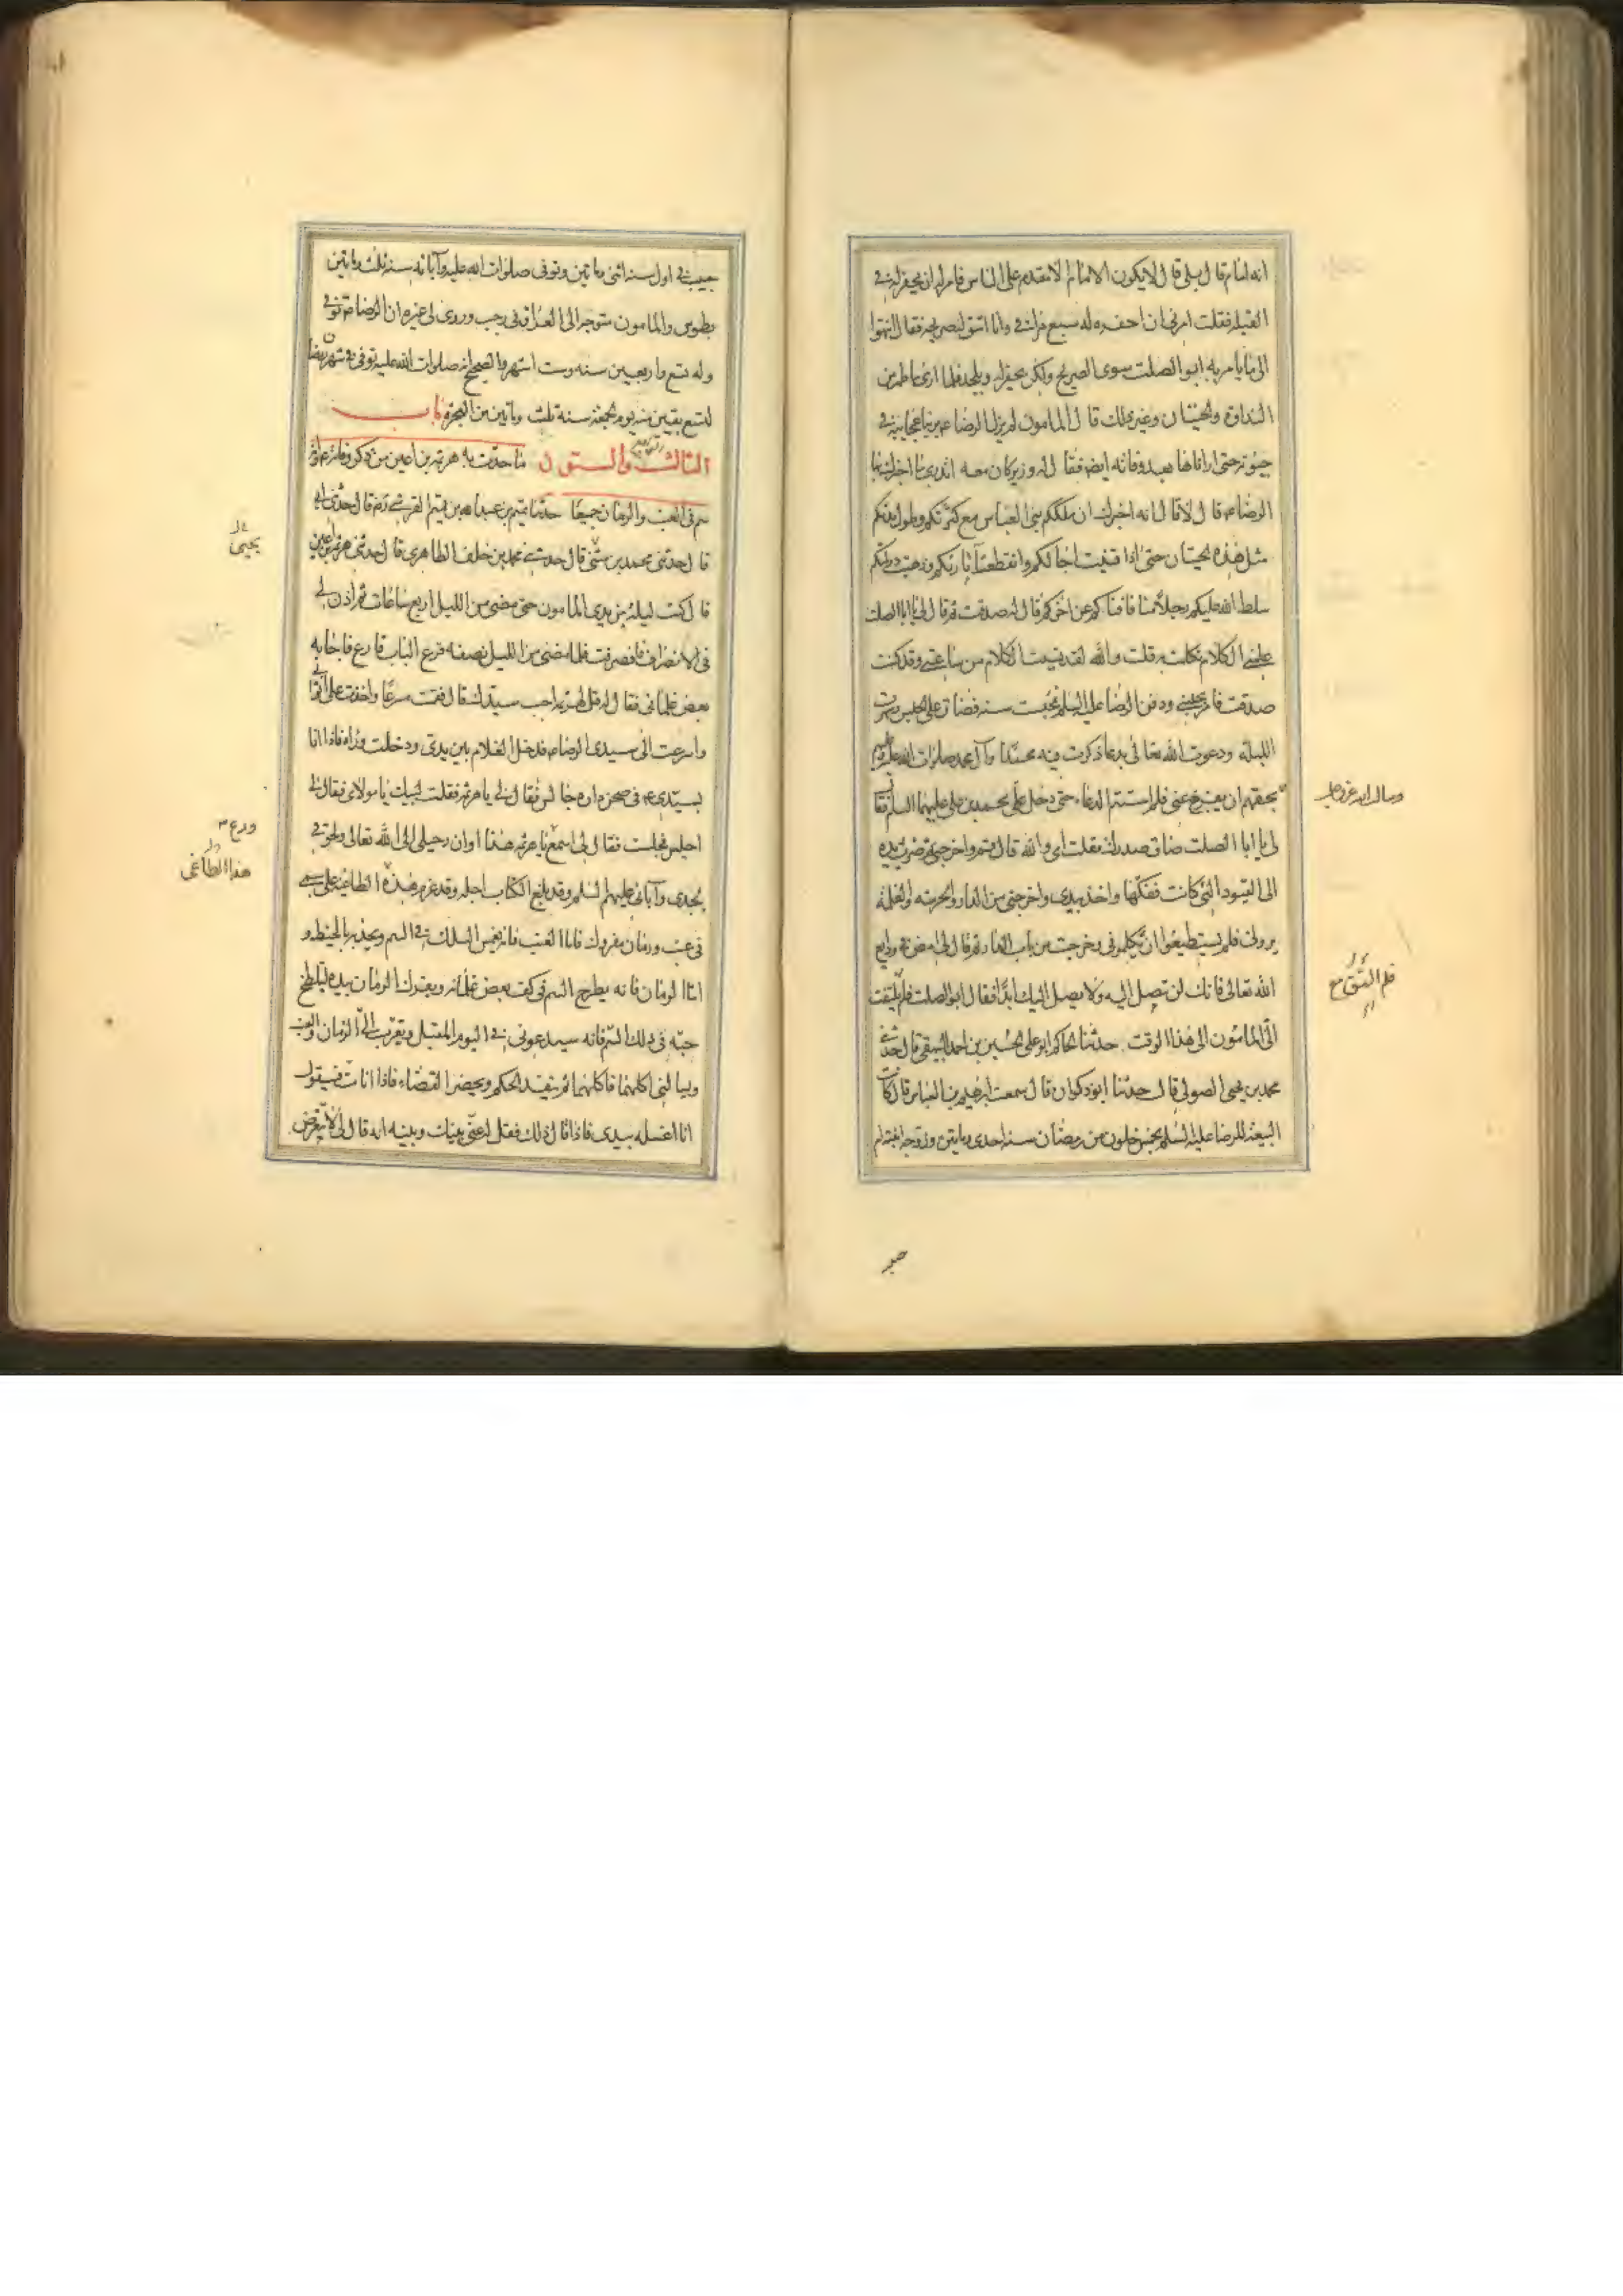 انه امام قال بلى قال لا يكون الامام الا مقدم على الناس فامر ان يحفر له في
القبلة فقلت امرني ان احفر له سبع مراقي وانا اشق له ضريحه فقال انتهوا
الى ما يامر به ابو الصلت سوى الضريح ولكن يحفر له ويلحد فلما راى ما ظهر من
النداوة والحيتان وغير ذلك قال المامون لم يزل الرضا ع يرينا عجايبه في
حيوته حتى اراناها بعد وفاته ايضا فقال له وزير كان معه اتدري ما اخبرك به
الرضا ع قال لا قال انه اخبرك ان ملككم بني العباس مع كثرتكم وطول مدتكم
مثل هذه الحيتان حتى اذا فنيت اجالكم وانقطعت آثاركم وذهبت دولتكم
سلط الله عليكم رجلا منا فافناكم عن اخركم قال له صدقت ثم قال لي يا ابا الصلت
علمني الكلام الذي تكلمت به قلت والله لقد نسيت الكلام من ساعتي وقد كنت
صدقت فامر بحبسي ودفن الرضا عليه السلم فحبست سنة فضاق علي الحبس وسهرت
الليلة ودعوت الله تعالى بدعاء ذكرت فيه محمدا وآل محمد صلوات الله عليهم
بحقهم ان يفرج عني فلم استتم الدعاء حتى دخل علي محمد بن علي عليهما السلم فقال
لي يا ابا الصلت ضاق صدرك فقلت اي والله قال قم واخرجني ثم ضرب يده
الى القيود التي كانت ففكها واخذ بيدي واخرجني من الدار والحرسة والغلمة
يروني فلم يستطيعوا ان يكلموني وخرجت من باب الدار ثم قال لي امض في ودايع
الله تعالى فانك لن تصل اليه ولا يصل اليك ابدا فقال ابو الصلت فلم يلتفت
الي المامون الى هذا الوقت حدثنا الحاكم ابو علي الحسين بن احمد البيهقي قال حدثني
محمد بن يحيى الصولي قال حدثنا ابو ذكوان قال سمعت ابرهيم بن العباس قال كانت
البيعة للرضا عليه السلم لخمس خلون من رمضان سنة احدى ومايتين وزوجه ابنته ام
وسال الله عز وجل
فلم التق مع
حبيب
حبيب في اول سنة اثنى ومايتين وتوفى صلوات الله عليه وآبائه سنة ثلث ومايتين
بطوس والمامون متوجه الى العراق في رجب وروى لي غيره ان الرضا ع توفي
وله تسع واربعين سنة وست اشهر والصحيح انه صلوات الله عليه توفى في شهر رمضان
لتسع بقين منه يوم الجمعة سنة ثلث ومايتين من الهجرة باب
الثالث والستون ما حدث به هرثمة بن اعين من ذكر وفاته ع وانه
سم في العنب والرمان جميعا حدثنا تميم بن عبد الله بن تميم القرشي رض قال حدثني ابي
قال حدثني محمد بن مثنى قال حدثني محمد بن خلف الطاهري قال حدثني هرثمة بن اعين
قال كنت ليلة بين يدي المامون حتى مضى من الليل اربع ساعات ثم اذن لي
في الانصراف فانصرفت فلما مضى من الليل نصفه قرع الباب قارع فاجابه
بعض غلماني فقال له قل لهرثمة اجب سيدك قال فقمت مسرعا واخذت علي اثوابي
واسرعت الى سيدي الرضا ع فدخل الغلام بين يدي ودخلت وراه فاذا انا
بسيدي ع في صحن داره جالس فقال لي يا هرثمة فقلت لبيك يا مولاي فقال لي
اجلس فجلست فقال لي اسمع يا هرثمة هذا اوان رحيلي الى الله تعالى ولحوقي
بجدي وآبائي عليهم السلم وقد بلغ الكتاب اجله وقد عزم هذه الطاغية على سمي
في عنب ورمان مفروك فاما العنب فانه يغمس السلك في السم ويجذبه بالخيط و
اما الرمان فانه يطرح السم في كف بعض غلمانه ويفرك الرمان بيده ليلطخ
حبه في ذلك السم فانه سيدعوني في اليوم المقبل ويقرب الي الرمان والعنب
ويسالني اكلهما فاكلهما ثم ينفذ الحكم ويحضر القضاء فاذا انا مت فسيقول
انا اغسله بيدي فاذا قال ذلك فقل له عني بينك وبينه انه قال لي لا تتعرض
يحيى
وع ع
هذا الطاغي